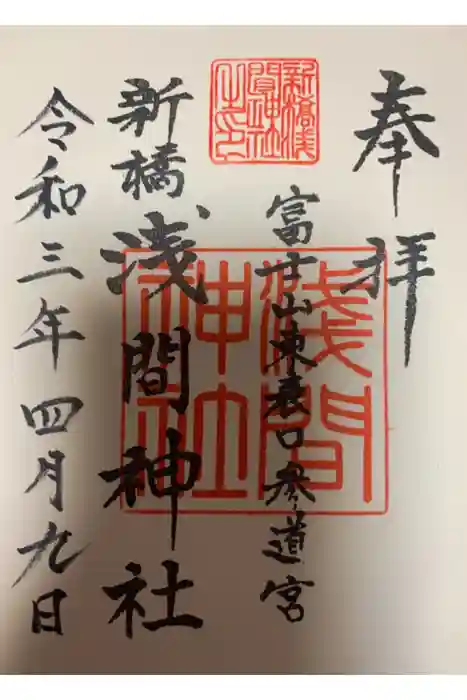 奉拝
富士山東表口参道宮
新橋浅間神社
令和三年四月九日
新橋浅間神社之印
浅間神社